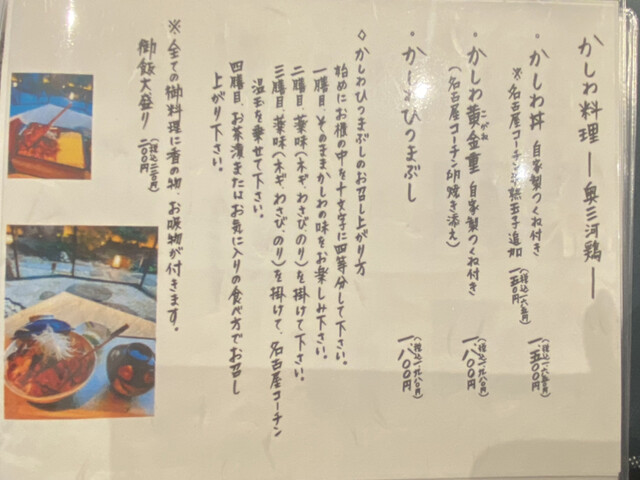 かしわ料理 ―奥三河鶏―
・かしわ丼 自家製つくね付き
(税込一、六五〇円)
一、五〇〇円
※名古屋コーチン半熟玉子追加
(税込一六五円)
一五〇円
・かしわ黄金重 自家製つくね付き
こがね
(名古屋コーチン卵焼き添え)
(税込一、九八〇円)
一、八〇〇円
・かしわひつまぶし
(税込一、九八〇円)
一、八〇〇円
◇かしわひつまぶしのお召し上がり方
始めにお櫃の中を十文字に四等分して下さい。
一膳目、そのままかしわの味をお楽しみ下さい。
二膳目、薬味(ネギ、わさび、のり)を掛けて下さい。
三膳目、薬味(ネギ、わさび、のり)を掛けて、名古屋コーチン
温玉を乗せて下さい。
四膳目、お茶漬またはお気に入りの食べ方でお召し
上がり下さい。
※全ての御料理に香の物、お吸物が付きます。
御飯大盛り
(税込二二〇円)
二〇〇円